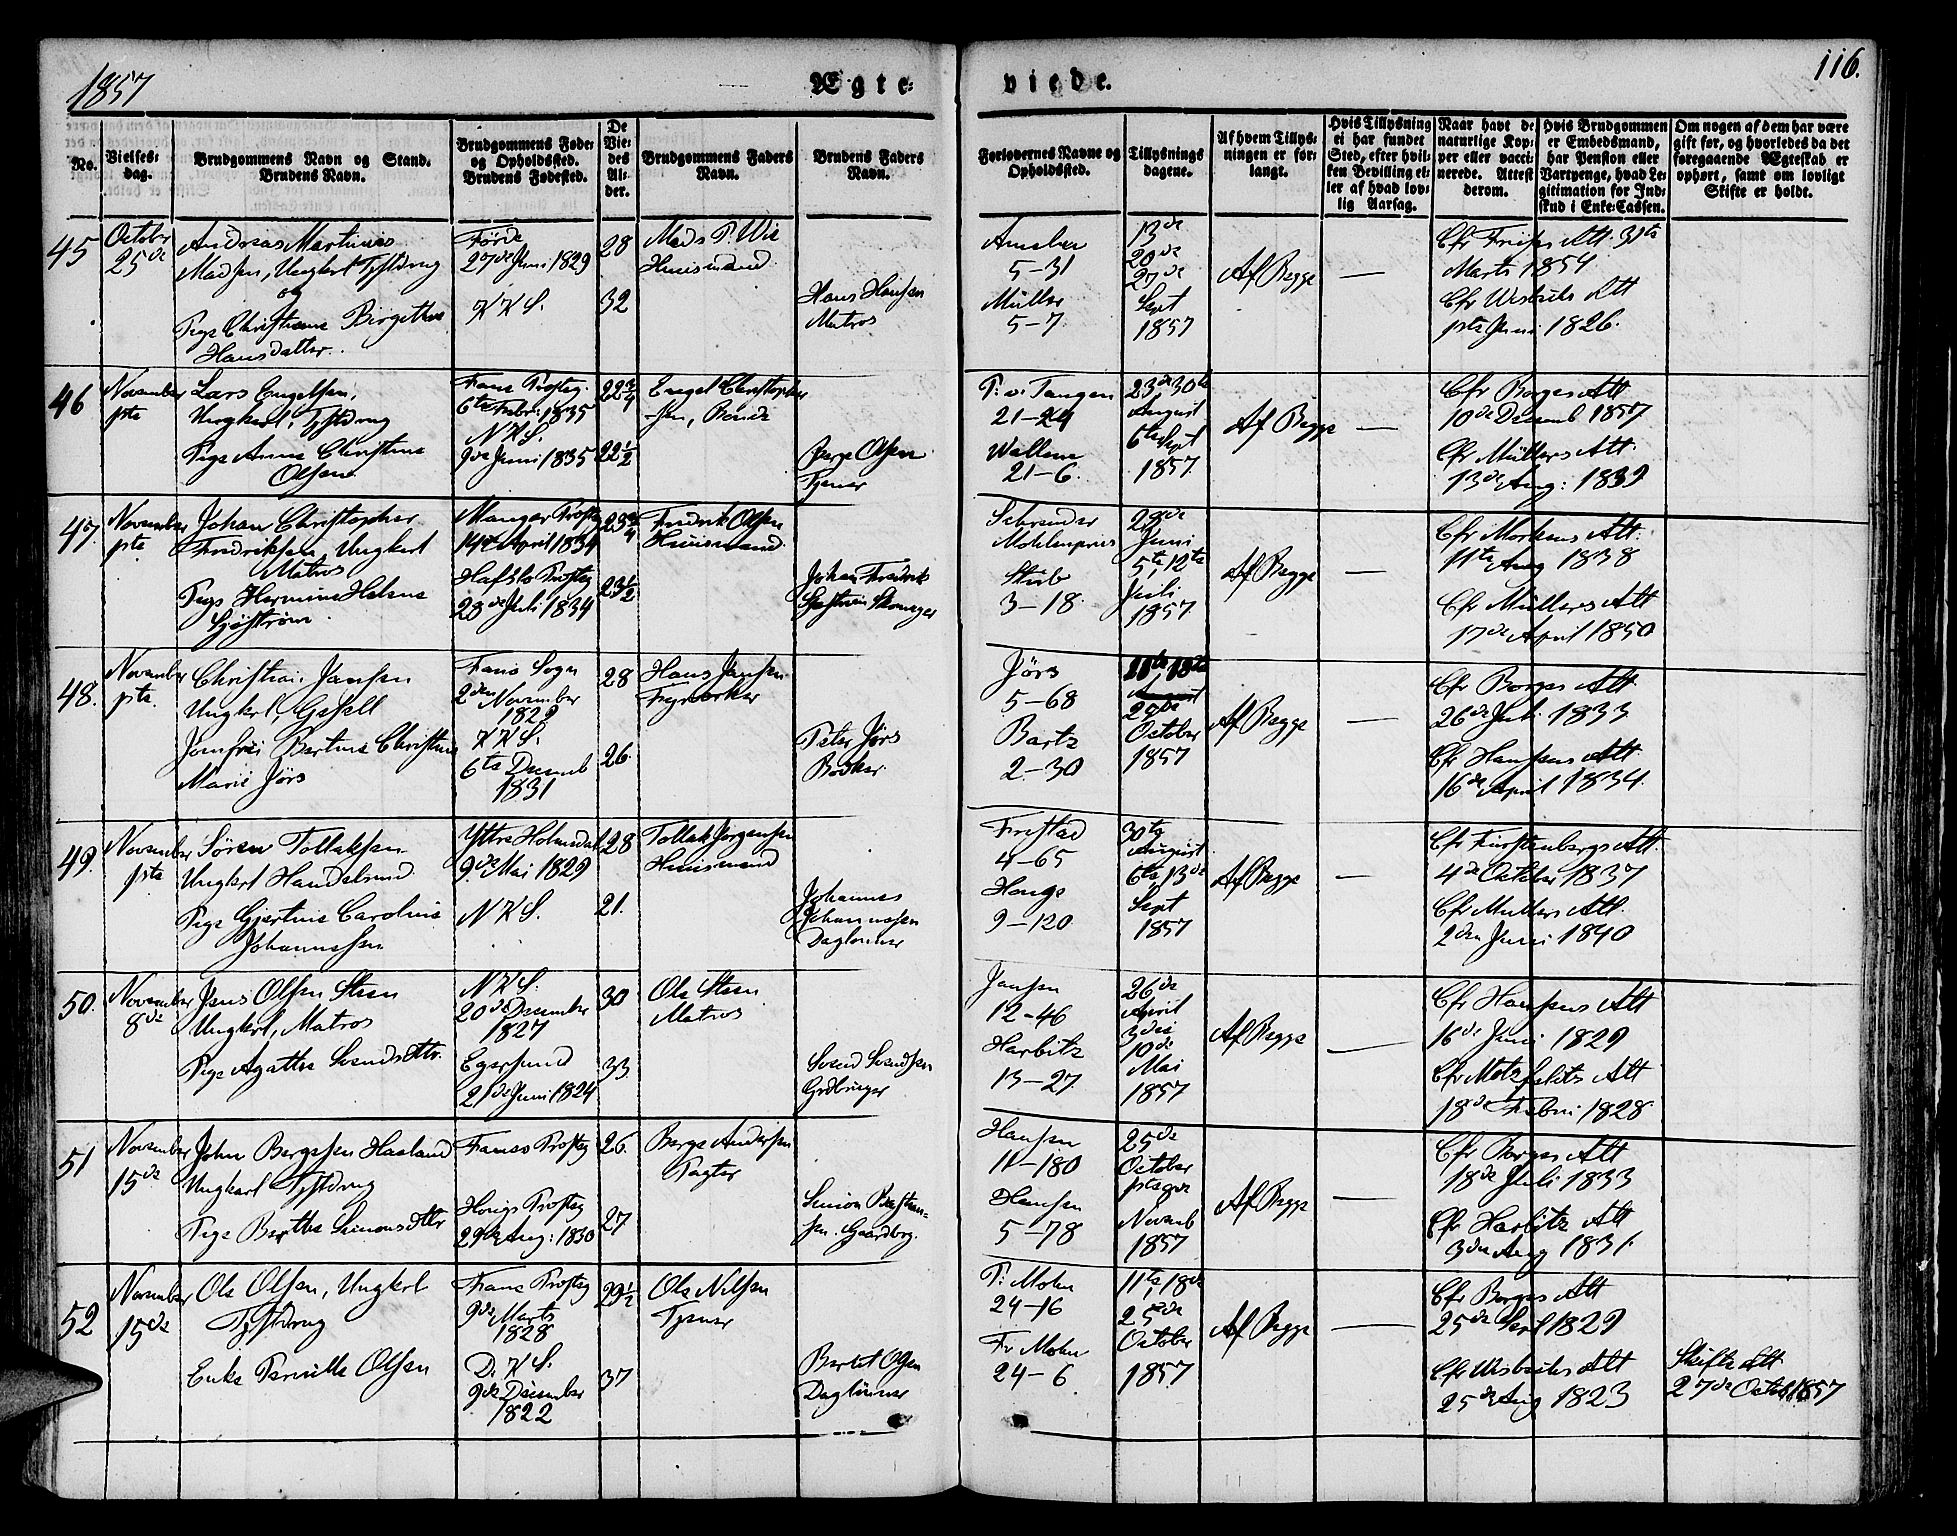 1857
Ægte-
viede.
116.
No.
Vielses-
dag.
Brudgommens Navn og Stand.
Brudens Navn.
Brudgommens Føde-
og Opholdssted.
Brudens Fødested.
De
Vie-
des
Al-
der.
Brudgommens Faders
Navn.
Brudens Faders
Navn.
Forlovernes Navne og
Opholdssted.
Tillysnings
dagene.
Af hvem Tillys-
ningen er for-
langt.
Hvis Tillysning
ei har fundet
Sted, efter hvil-
ken Bevilling el-
ler af hvad lov-
lig Aarsag.
Naar havt de
naturlige Kop-
per eller vacci-
nerede. Attest
derom.
Hvis Brudgommen
er Embedsmand,
har Pension eller
Vartpenge, hvad Le-
gitimation for Ind-
skud i Enke-Cassen.
Om nogen af dem har være
gift før, og hvorledes da det
foregaaende Ægteskab er
ophørt, samt om lovligt
Skifte er holdt.
45
October
25de
Andreas Martinus
Madsen, Ungkarl
og
Pige Christiane Birgitha
Hansdatter.
Førde
27de Juni 1829
KKS.
28
32
Mads P. Wie
Huusmand
Hans Hansen
Matros
5-31
Müller
5-7.
13de
20de
27de
Sept
1857
Af Begge
—
Att. 31te
Marts 1854
Cfr Wesbuhs Att
1ste Juni 1826.
46
November
1ste
Lars Engelsen,
Ungkarl,
Pige Anna Christine
Olsen
Fane Prostg.
6te Febr: 1835
NKS.
9de Juni 1835
22 3/4
22 1/2
Engel Christopher
-sen, Bonde
Børge Olsen
Tjener
P: v. Tangen
21-24
Wallem
21-6.
23de 30te
August
6te Sept
1857.
Af Begge
—
Cfr Borges Att
10de Decemb 1857
Cfr Müllers Att.
13de Aug: 1839
47.
November
1ste
Johan Christopher
Fredriksen, Ungkarl
Matros
Pige Hermine Helene
Sjøstrøm.
Manger Prostg
14de April 1834
Hafslo Prostg
28de Juli 1834
23 3/4
23 1/2
Fredrik Olsen
Huusmand.
Johan Fredrik
Sjøstrøm
Schrøder
Møhlenpriis
3-18.
28de
Juni
5te, 12te
Juli
1857
Af Begge
—
Cfr Mortens Att.
11te Aug 1838
Cfr Müllers Att
17de April 1850
48.
November
1ste.
Christian Jansen
Ungkarl, Gesell
Jomfru Bertine Christine
Marie Jörs
Fane Sogn
2den November
1829
KKS.
6te Decemb
1831
28
26.
Hans Jansen
Peter Jörs
Bødker.
Jörs
5-68
Bartz
2-30
11te 18te
October
1857
Af Begge
—
Cfr Borges Att.
26de Juli 1833
Cfr Hansens Att
16de April 1834.
49.
November
1ste
Søren Tollaksen
Ungkarl Handelsmd.
Pige Gjertine Caroline
Johannessen
Yttre Holmedal
9de Mai 1829
NKS.
28
21.
Tollak Jørgensen
Huusmand
Johannes
Johannessen
Daglønner
4-65
Hauge
9-120
30te
August
6te, 13de
Sept
1857
Af Begge
—
Cfr Fürstenbergs Att.
4de October 1837
Cfr Mullers Att.
2den Juni 1840
50.
November
8de
Jens Olsen Steen
Ungkarl, Matros
Pige Agathe Svendsdtr.
NKS.
20de December
1827
Egersund
21de Juni 1824
30
33.
Ole Steen
Matros
Svend Svendsen
Jansen
12-46
Harbitz
13-27.
26de
April
3die
10de
Mai
1857
Af Begge
—
Cfr Hansens Att
16de Juni 1829
Cfr Motzfeldts Att
18de Febru: 1828.
51
November
15de
John Børgesen Haaland
Ungkarl
Pige Berthe Simonsdtr
Fanø Prostg
Hougs Prostg
29de Aug: 1830
26.
27
Børge Andersen
Simon Bastian-
sen. Gaardbrg.
Hansen
11-180
Hansen
5-78
25de
October
1ste 8de
Novemb
1857
Af Begge
—
Cfr Borges Att
18de Juli 1833
Cfr Harbitz Att
3die Aug 1831.
52
November
15de
Ole Olsen, Ungkarl
Enke Pernille Olsen
Fane Prostg
9de Marts
1828
D. KS.
9de December
1822
29 1/2
37
Ole Nilsen
Tjener
Bertel Olsen
Daglønner
P: Mohn
24-16
Fr Mohn
24-6
11te, 18de
25de
October
1857
Af Begge
—
Cfr Borges Att
25de Sept 1829
Cfr Wesbuhs Att
25de Aug 1823
Skifte Att
27de Octob 1857